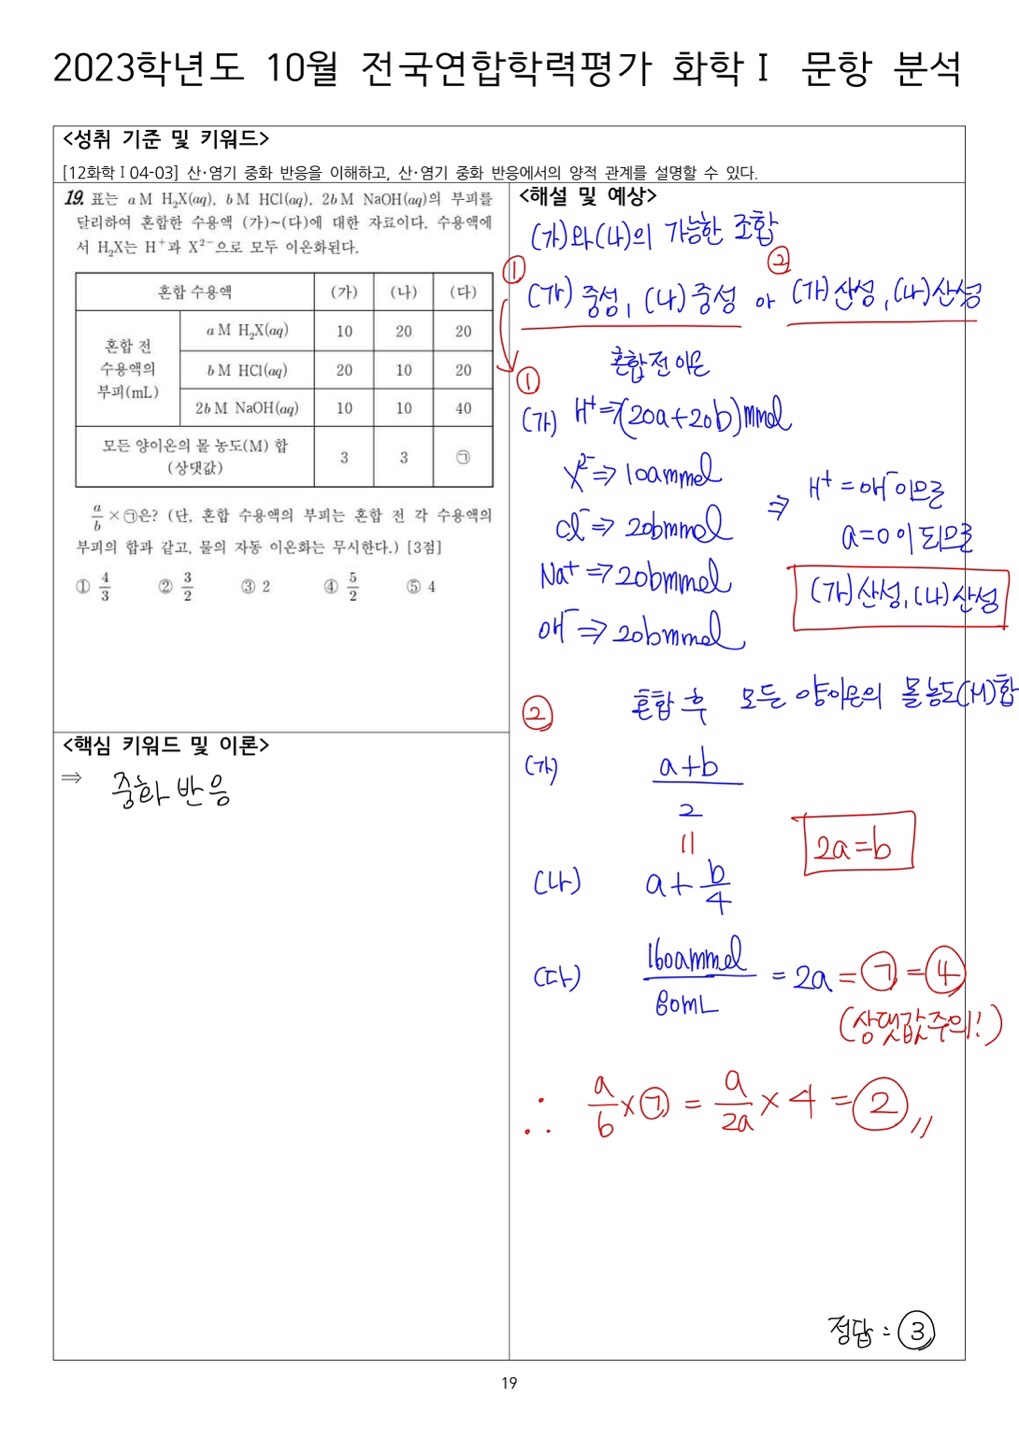 2023학년도 10월 전국연합학력평가 화학Ⅰ 문항 분석
<성취 기준 및 키워드>
[12화학Ⅰ04-03] 산·염기 중화 반응을 이해하고, 산·염기 중화 반응에서의 양적 관계를 설명할 수 있다.
19. 표는 a M H₂X(aq), b M HCl(aq), 2b M NaOH(aq)의 부피를
달리하여 혼합한 수용액 (가)~(다)에 대한 자료이다. 수용액에
서 H₂X는 H⁺과 X²⁻으로 모두 이온화된다.
혼합 수용액 (가) (나) (다)
혼합 전 수용액의 부피(mL)
a M H₂X(aq) 10 20 20
b M HCl(aq) 20 10 20
2b M NaOH(aq) 10 10 40
모든 양이온의 몰 농도(M) 합 (상댓값) 3 3 ㉠
a/b × ㉠은? (단, 혼합 수용액의 부피는 혼합 전 각 수용액의
부피의 합과 같고, 물의 자동 이온화는 무시한다.) [3점]
① 4/3 ② 3/2 ③ 2 ④ 5/2 ⑤ 4
<핵심 키워드 및 이론>
⇒ 중화 반응
<해설 및 예상>
(가)와 (나)의 가능한 조합
① (가) 중성, (나) 중성 or ② (가) 산성, (나) 산성
① 혼합 전 이온
(가) H⁺ ⇒ (20a+20b)mmol
X²⁻ ⇒ 10a mmol
Cl⁻ ⇒ 20b mmol
Na⁺ ⇒ 20b mmol
OH⁻ ⇒ 20b mmol
⇒ H⁺ = OH⁻ 이므로
a=0 이 되므로
(가) 산성, (나) 산성
② 혼합 후 모든 양이온의 몰 농도(M)합
(가) a+b / 2
||
(나) a + b/4
2a=b
(다) 160a mmol / 80mL = 2a = ㉠ = ④
(상댓값 주의!)
∴ a/b × ㉠ = a/2a × 4 = ② 〃
정답 : ③
19